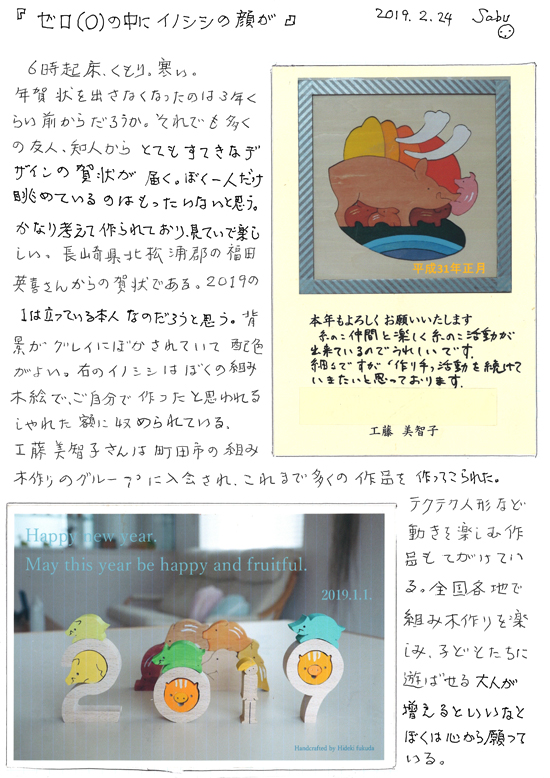 『ゼロ(0)の中にイノシシの顔が』
2019.2.24 Sabu
6時起床、くもり。寒い。
年賀状を出さなくなったのは3年く
らい前からだろうか。それでも多く
の友人、知人からとてもすてきなデ
ザインの賀状が届く。ぼく一人だけ
眺めているのはもったいないと思う。
かなり考えて作られており、見ていて楽
しい。長崎県北松浦郡の福田
英喜さんからの賀状である。2019の
1は立っている本人なのだろうと思う。背
景がグレイにぼかされていて配色
がよい。右のイノシシはぼくの組み
木絵で、ご自分で作ったと思われる
しゃれた額に収められている。
工藤美智子さんは町田市の組み
木作りのグループに入会され、これまで多くの作品を作ってこられた。
平成31年正月
本年もよろしくお願いいたします
糸のこ仲間と楽しく糸のこ活動が
出来ているのでうれしいです。
細々ですが「作り手」活動を続けて
いきたいと思っております。
工藤 美智子
Happy new year.
May this year be happy and fruitful.
2019.1.1.
2019
Handcrafted by Hideki fukuda
テクテク人形など
動きを楽しむ作
品もてがけてい
る。全国各地で
組み木作りを楽
しみ、子どもたちに
遊ばせる大人が
増えるといいなと
ぼくは心から願って
いる。